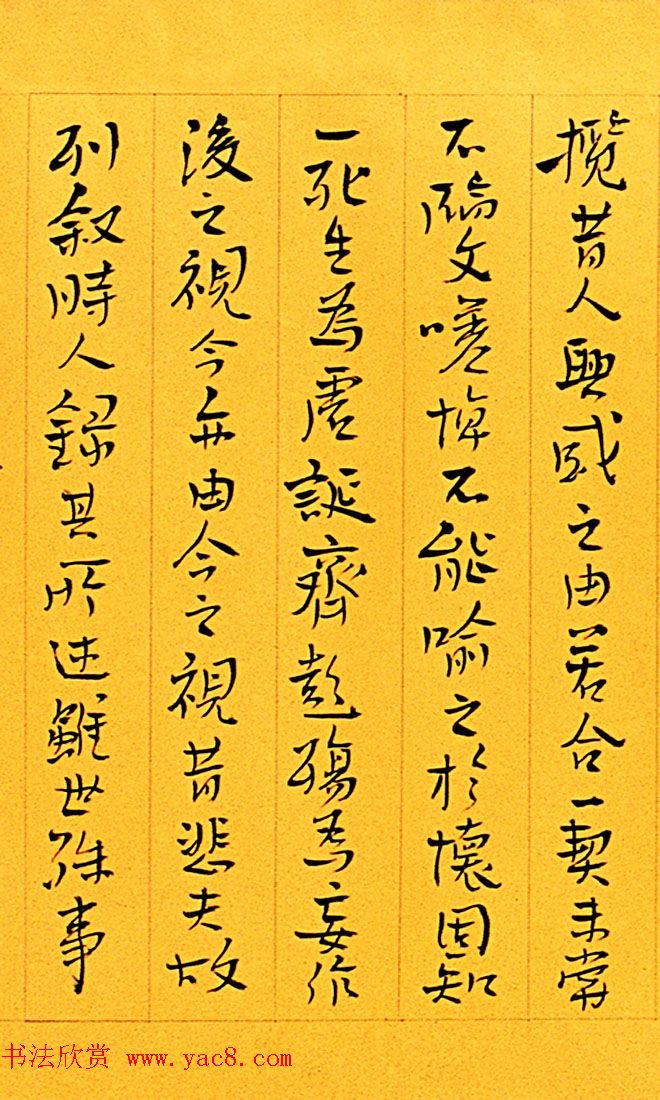 攬昔人興感之由若合一契未嘗
不臨文嗟悼不能喻之於懷固知
一死生為虛誕齊彭殤為妄作
後之視今亦由今之視昔悲夫故
列敘時人錄其所述雖世殊事
书法欣赏 www.yac8.com